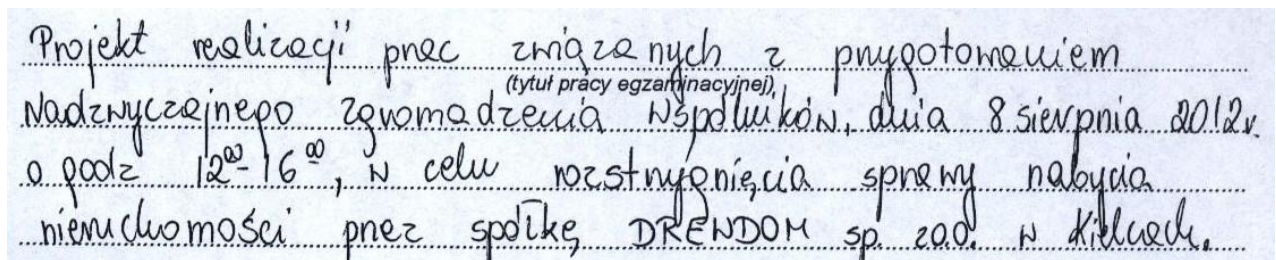 Projekt realizacji prac związanych z przygotowaniem
(tytuł pracy egzaminacyjnej)
Nadzwyczajnego zgromadzenia Wspólników, dnia 8 sierpnia 2012r.
o godz 12⁰⁰- 16⁰⁰, w celu rozstrzygnięcia sprawy nabycia
nieruchomości przez spółkę DREWDOM sp. z o.o. w Kielcach.